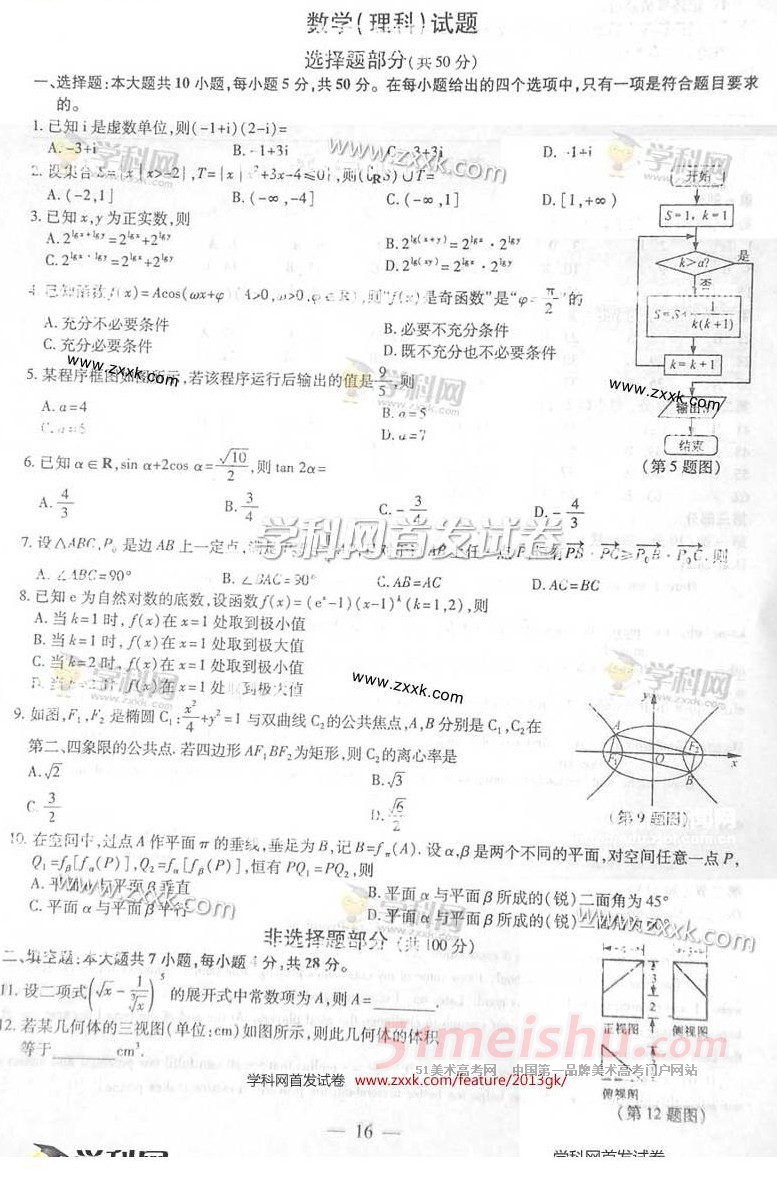 数学(理科)试题
选择题部分(共50分)
一、选择题:本大题共10小题,每小题5分,共50分。在每小题给出的四个选项中,只有一项是符合题目要求
的。
1. 已知i是虚数单位,则(-1+i)(2-i)=
A. -3+i B. -1+3i C. -3+3i D. -1+i
2. 设集合S={x|x>-2},T={x|x²+3x-4≤0},则(∁RS)∪T=
A. (-2,1] B. (-∞,-4] C. (-∞,1] D. [1,+∞)
3. 已知x,y为正实数,则
A. 2^(lgx+lgy)=2^(lgx)+2^(lgy) B. 2^(lg(x+y))=2^(lgx)·2^(lgy)
C. 2^(lgx·lgy)=2^(lgx)+2^(lgy) D. 2^(lg(xy))=2^(lgx)·2^(lgy)
4. 已知函数f(x)=Acos(ωx+φ)(A>0,ω>0,φ∈R),则"f(x)是奇函数"是"φ=π/2"的
A. 充分不必要条件 B. 必要不充分条件
C. 充分必要条件 D. 既不充分也不必要条件
5. 某程序框图如图所示,若该程序运行后输出的值是9/5,则
A. a=4 B. a=5
C. a=6 D. a=7
开始
S=1, k=1
k>a?
是
否
S=S+1/k(k+1)
k=k+1
输出S
结束
(第5题图)
6. 已知α∈R,sin α+2cos α=√10/2,则tan 2α=
A. 4/3 B. 3/4 C. -3/4 D. -4/3
7. 设△ABC,P₀是边AB上一定点,满足 AB,且对于 AB上任一点P,恒有PB·PC≥P₀B·P₀C.则
A. ∠ABC=90° B. ∠BAC=90° C. AB=AC D. AC=BC
8. 已知e为自然对数的底数,设函数f(x)=(eˣ-1)(x-1)ᵏ(k=1,2),则
A. 当k=1时,f(x)在x=1处取到极小值
B. 当k=1时,f(x)在x=1处取到极大值
C. 当k=2时,f(x)在x=1处取到极小值
D. 当k=2时,f(x)在x=1处取到极大值
9. 如图,F₁,F₂是椭圆C₁:x²/4+y²=1与双曲线C₂的公共焦点,A,B分别是C₁,C₂在
第二、四象限的公共点.若四边形AF₁BF₂为矩形,则C₂的离心率是
A. √2 B. √3
C. 3/2 D. √6/2
y
A
F₁
O
F₂
x
B
(第9题图)
10. 在空间中,过点A作平面π的垂线,垂足为B,记B=fπ(A).设α,β是两个不同的平面,对空间任意一点P,
Q₁=fβ[fα(P)],Q₂=fα[fβ(P)],恒有PQ₁=PQ₂,则
A. 平面α与平面β垂直 B. 平面α与平面β所成的(锐)二面角为45°
C. 平面α与平面β平行 D. 平面α与平面β所成的(锐)二面角为60°
非选择题部分(共100分)
二、填空题:本大题共7小题,每小题4分,共28分。
11. 设二项式(√x-1/∛x)⁵的展开式中常数项为A,则A=________.
12. 若某几何体的三视图(单位:cm)如图所示,则此几何体的体积
等于________cm³.
正视图 侧视图
俯视图
(第12题图)
学科网首发试卷 www.zxxk.com/feature/2013gk/
— 16 —
学科网
www.zxxk.com
学科网首发试卷
51meishu.com
51美术高考网 中国第一品牌美术高考门户网站
学科网首发试卷